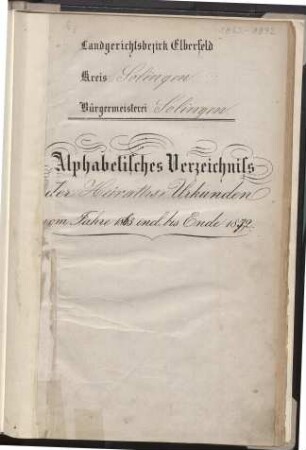 1863-1872
Landgerichtsbezirk Elberfeld
Kreis Solingen
Bürgermeisterei Solingen
Alphabetisches Verzeichniß
der Heiraths-Urkunden
vom Jahre 1863 incl. bis Ende 1872.